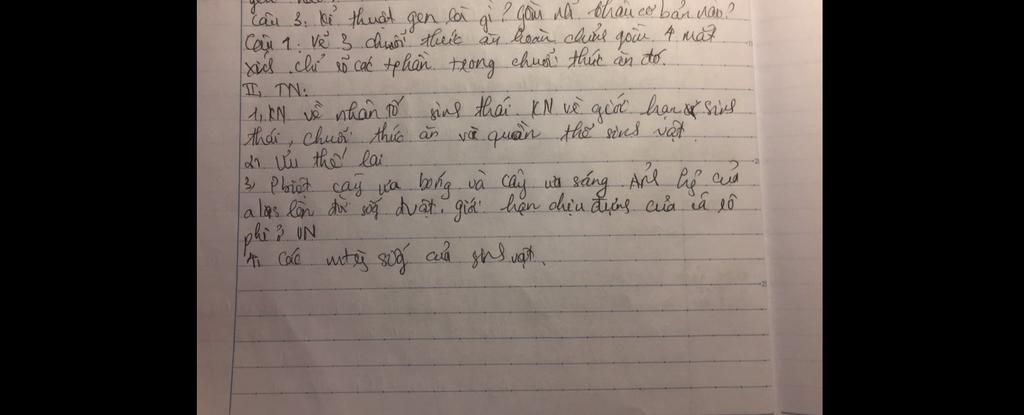 câu 3. kĩ thuật gen là gì? Gồm nh khâu cơ bản nào?
Câu 4. Vẽ 3 chuỗi thức ăn hoàn chỉnh gồm 4 mắt
xích. chỉ rõ các tphần trong chuỗi thức ăn đó.
II, TN:
1, KN về nhân tố sinh thái. KN về giới hạn sinh
thái, chuỗi thức ăn và quần thể sinh vật
2, Ưu thế lai
3, Pbiệt cây ưa bóng và cây ưa sáng. Ảnh của
a/s lên đời sống đvật. giới hạn chịu đựng của cá rô
phi ở VN
4, Các mtrg sống của sinh vật.